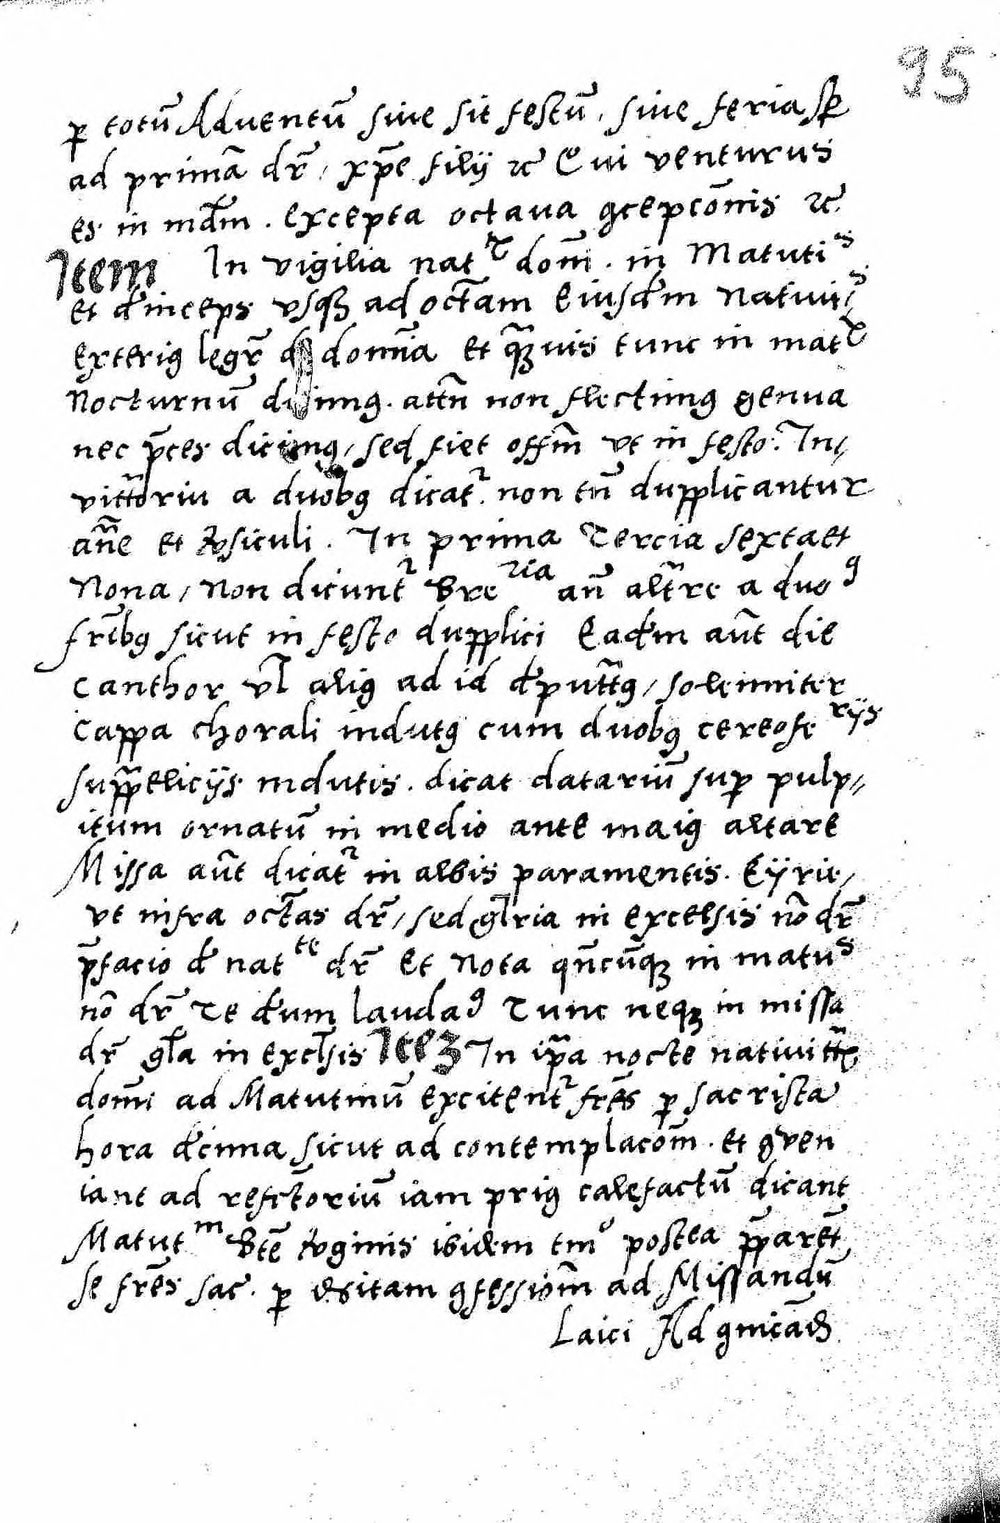 95
ꝑ totū Adventū siue sit festū, siue feria sꝑ
ad primā dr̄, xp̄e filij ⁊c̄ Qui venturus
es in mdm̄. excepta octaua ꝯcepcōnis ⁊c̄.
Item In vigilia nat domī. in Matuti
Et dinceps vsqꝫ ad octam Eiusdm nativi
Exterius legr̄ d domīa Et qꝫuis tunc in mat
Nocturnū dimꝯ. attn̄ non flectimꝯ genua
nec p̄ces dicimꝯ, sed fiet offm̄ vt in festo. In-
vittoriu a duobꝯ dicat. non tn̄ dupplicantur
an̄e Et vsiculi. In prima Tercia sexta et
Nona, Non dicunt Bre ria an̄ altre a duo ꝯ
frībꝯ sicut in festo dupplici Eadm aut die
Canthor vl aliꝯ ad id dputtꝯ, solenniter
Cappa chorali indutꝯ cum duobꝯ cereofe rijs
suppelicijs indutis. dicat datariū suꝑ pulp-
itum ornatū in medio ante maiꝯ altare
Missa aut dicat in albis paramentis. Kyrie,
vt infra octas dr̄, sed glria in excelsis nō dr̄
p̄facio d nat te dr̄ Et Nota qn̄cūqꝫ in matu s
nō dr̄ Te dum lauda ꝯ Tunc neqꝫ in missa
dr̄ gla in exclsis Iteꝫ In ip̄a nocte nativitt
domī ad Matutinū excitent frēs ꝑ sacrista
hora dcima sicut ad contemplacom̄. Et ꝯven
iant ad refctoriū iam priꝯ calefactū dicant
Matut m btē vginis ibidem tm̄ postea pp̄aret
se frēs sac. ꝑ ditam ꝯfessiom̄ ad Missandū
Laici Ad ꝯmīcād